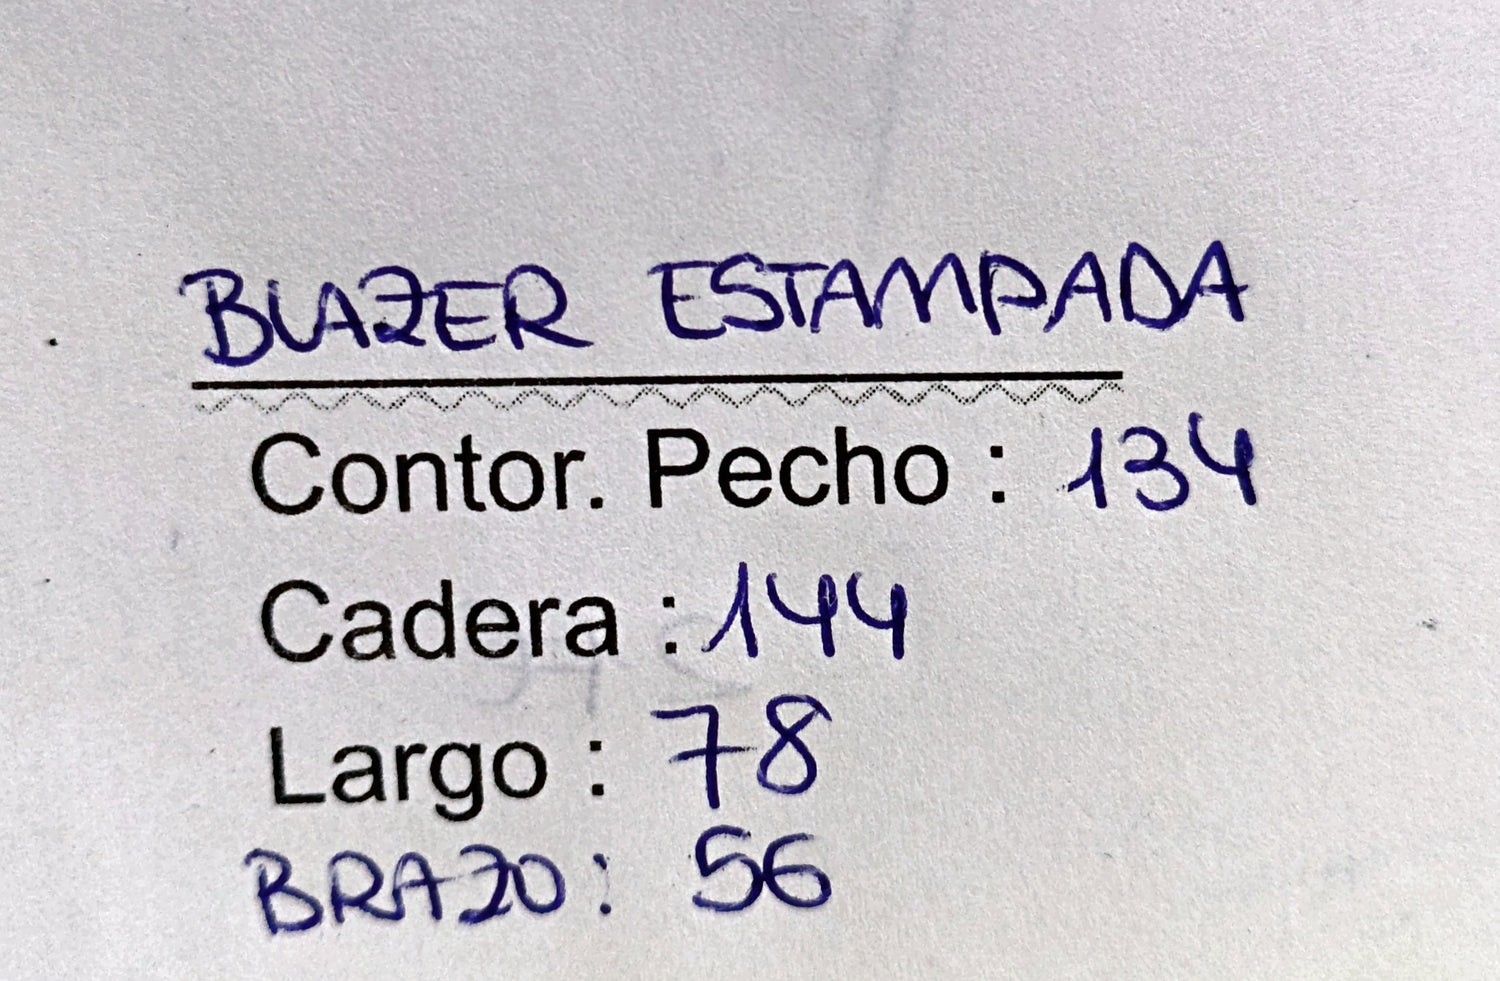 BLAZER ESTAMPADA
Contor. Pecho : 134
Cadera : 144
Largo : 78
BRAZO : 56